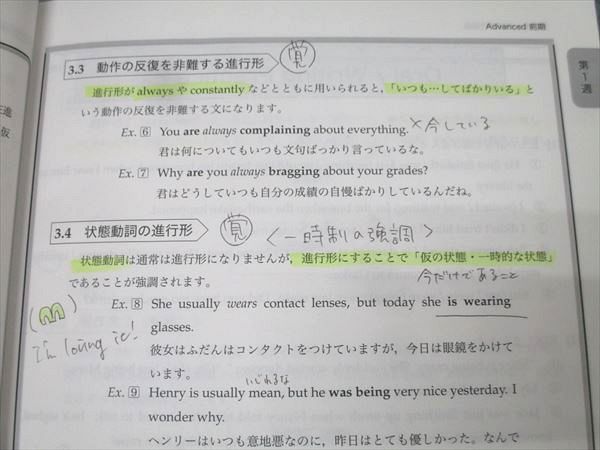 Advanced 前期
第1週
3.3 動作の反復を非難する進行形
覚
進行形が always や constantly などとともに用いられると，「いつも…してばかりいる」と
いう動作の反復を非難する文になります。
Ex. 6 You are always complaining about everything.
×今している
君は何についてもいつも文句ばっかり言っているな。
Ex. 7 Why are you always bragging about your grades?
君はどうしていつも自分の成績の自慢ばかりしているんだね。
3.4 状態動詞の進行形
覚
〈一時制の強調〉
状態動詞は通常は進行形になりませんが，進行形にすることで「仮の状態・一時的な状態」
であることが強調されます。
今だけであること
Ex. 8 She usually wears contact lenses, but today she is wearing
glasses.
I'm loving it!
彼女はふだんはコンタクトをつけていますが，今日は眼鏡をかけて
います。
Ex. 9 Henry is usually mean, but he was being very nice yesterday. I
wonder why.
ヘンリーはいつも意地悪なのに，昨日はとても優しかった。なんで